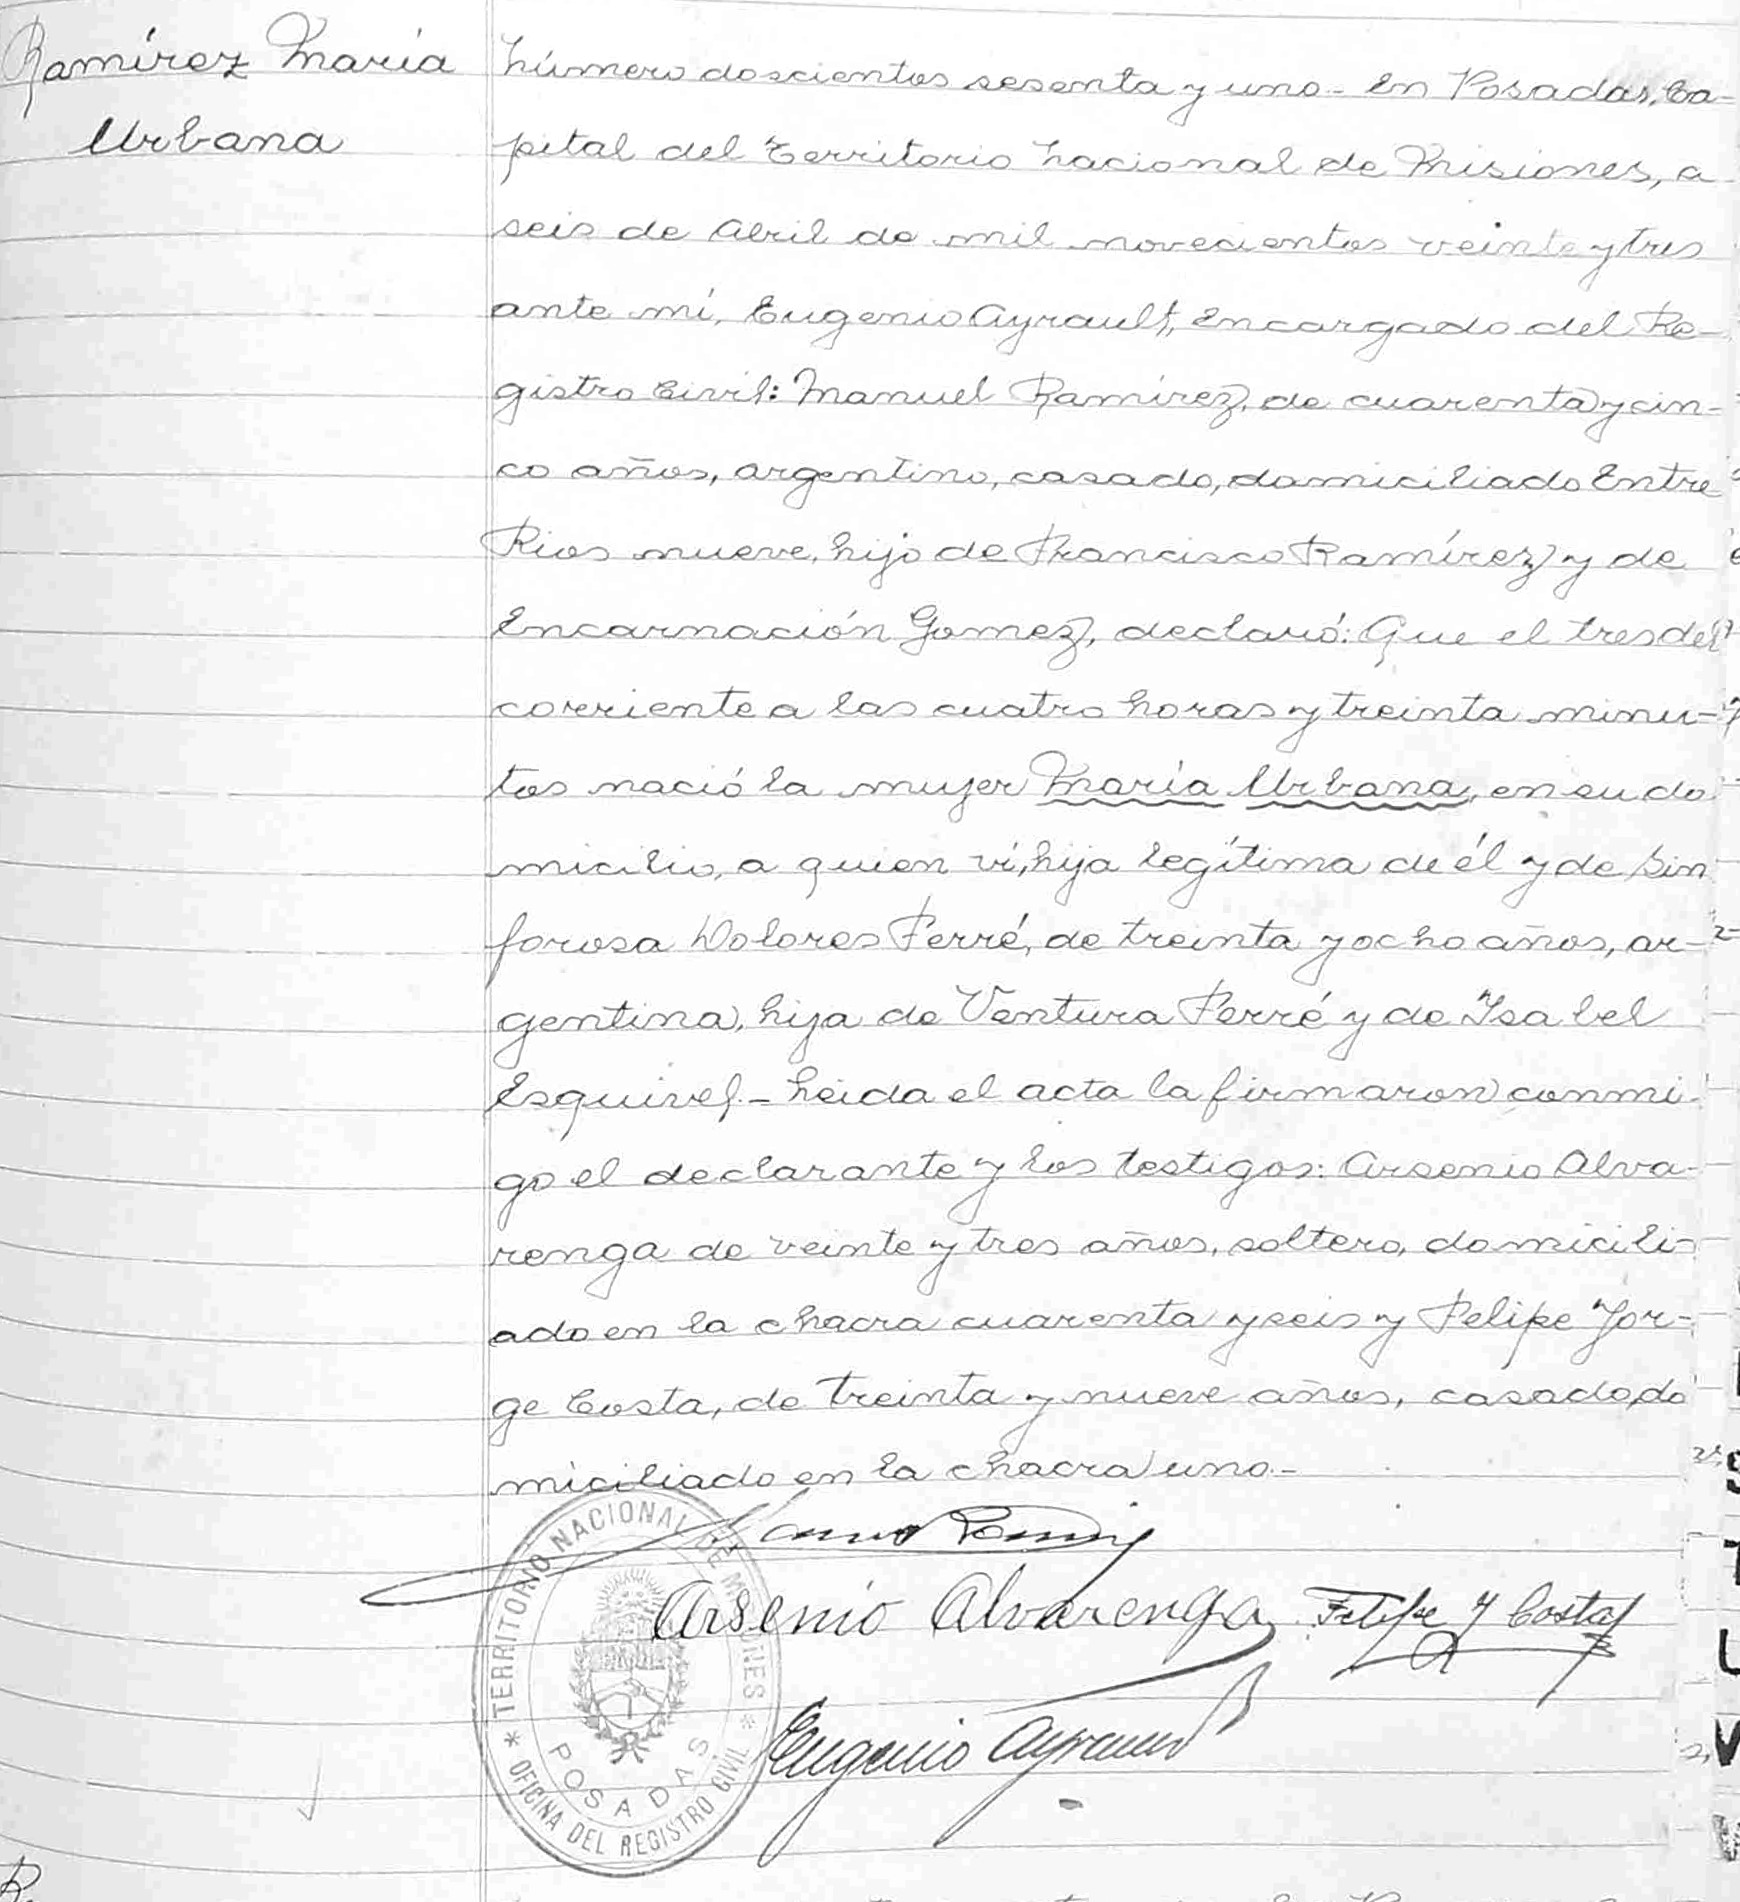 Ramírez María
Urbana
Número doscientos sesenta y uno - En Posadas, Ca-
pital del Territorio Nacional de Misiones, a
seis de Abril de mil novecientos veinte y tres
ante mí, Eugenio Ayrault, Encargado del Re-
gistro Civil: Manuel Ramírez, de cuarenta y cin-
co años, argentino, casado, domiciliado Entre
Rios nueve, hijo de Francisco Ramírez y de
Encarnación Gomez, declaró: Que el tres del
corriente a las cuatro horas y treinta minu-
tos nació la mujer María Urbana, en su do
micilio, a quien ví, hija legítima de él y de Sin
forosa Dolores Ferré, de treinta y ocho años, ar-
gentina, hija de Ventura Ferré y de Ysabel
Esquivel. - Leida el acta la firmaron conmi-
go el declarante y los testigos: Arsenio Alva-
renga de veinte y tres años, soltero, domicili-
ado en la chacra cuarenta y seis y Felipe Jor-
ge Costa, de treinta y nueve años, casado, do
miciliado en la chacra uno. -
Arsenio Alvarenga Felipe J Costa
Eugenio Ayrault
TERRITORIO NACIONAL DE MISIONES
POSADAS
* OFICINA DEL REGISTRO CIVIL *
S
T
U
V